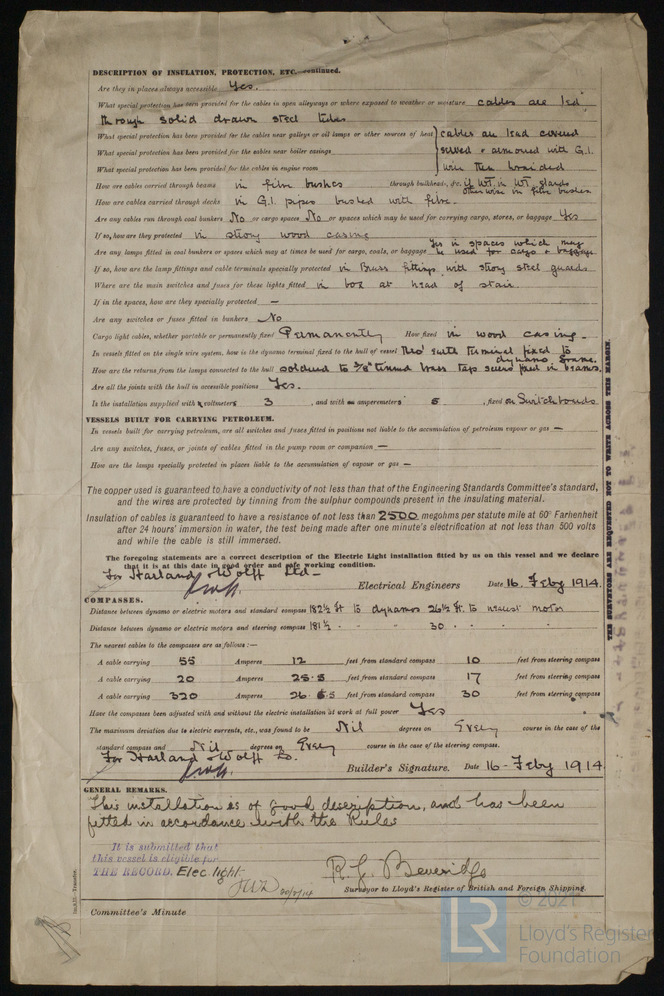 DESCRIPTION OF INSULATION, PROTECTION, ETC.—continued.
Are they in places always accessible Yes.
What special protection has been provided for the cables in open alleyways or where exposed to weather or moisture cables are led
through solid drawn steel tubes
What special protection has been provided for the cables near galleys or oil lamps or other sources of heat cables are lead covered
What special protection has been provided for the cables near boiler casings served & armoured with G.I.
What special protection has been provided for the cables in engine room wire then braided
How are cables carried through beams in fibre bushes through bulkheads, &c. if WT. in WT. glands
otherwise in fibre bushes
How are cables carried through decks in G.I. pipes bushed with fibre.
Are any cables run through coal bunkers No or cargo spaces No or spaces which may be used for carrying cargo, stores, or baggage Yes
If so, how are they protected in strong wood casing
Are any lamps fitted in coal bunkers or spaces which may at times be used for cargo, coals, or baggage Yes in spaces which may
be used for cargo & baggage
If so, how are the lamp fittings and cable terminals specially protected in Brass fittings with strong steel guards
Where are the main switches and fuses for these lights fitted in box at head of stair.
If in the spaces, how are they specially protected —
Are any switches or fuses fitted in bunkers No
Cargo light cables, whether portable or permanently fixed Permanently How fixed in wood casing.
In vessels fitted on the single wire system, how is the dynamo terminal fixed to the hull of vessel thro' switch terminal fixed to
dynamo frame.
How are the returns from the lamps connected to the hull soldered to 3/8" tinned brass taps screwed in beams.
Are all the joints with the hull in accessible positions Yes.
Is the installation supplied with voltmeters 3, and with amperemeters 6, fixed on Switchboards
VESSELS BUILT FOR CARRYING PETROLEUM.
In vessels built for carrying petroleum, are all switches and fuses fitted in positions not liable to the accumulation of petroleum vapour or gas —
Are any switches, fuses, or joints of cables fitted in the pump room or companion —
How are the lamps specially protected in places liable to the accumulation of vapour or gas —
The copper used is guaranteed to have a conductivity of not less than that of the Engineering Standards Committee's standard,
and the wires are protected by tinning from the sulphur compounds present in the insulating material.
Insulation of cables is guaranteed to have a resistance of not less than 2500 megohms per statute mile at 60° Farhenheit
after 24 hours' immersion in water, the test being made after one minute's electrification at not less than 500 volts
and while the cable is still immersed.
The foregoing statements are a correct description of the Electric Light installation fitted by us on this vessel and we declare
that it is at this date in good order and safe working condition.
For Harland & Wolff Ltd—
Electrical Engineers Date 16. Feby 1914.
COMPASSES.
Distance between dynamo or electric motors and standard compass 182½ ft to dynamos 26½ ft. to nearest motor
Distance between dynamo or electric motors and steering compass 181½ " " " 30 " " "
The nearest cables to the compasses are as follows:—
A cable carrying 55 Amperes 12 feet from standard compass 10 feet from steering compass
A cable carrying 20 Amperes 25.5 feet from standard compass 17 feet from steering compass
A cable carrying 320 Amperes 26.5 feet from standard compass 30 feet from steering compass
Have the compasses been adjusted with and without the electric installation at work at full power Yes
The maximum deviation due to electric currents, etc., was found to be Nil degrees on Every course in the case of the
standard compass and Nil degrees on Every course in the case of the steering compass.
For Harland & Wolff Ld.
Builder's Signature. Date 16 - Feby 1914.
GENERAL REMARKS.
This installation is of good description, and has been
fitted in accordance with the Rules
It is submitted that
this vessel is eligible for
THE RECORD. Elec light.
JWD 20/2/14
R. J. Beveridge
Surveyor to Lloyd's Register of British and Foreign Shipping.
Committee's Minute
THE SURVEYORS ARE REQUESTED NOT TO WRITE ACROSS THIS MARGIN.
© 2021
LR
Lloyd's Register
Foundation